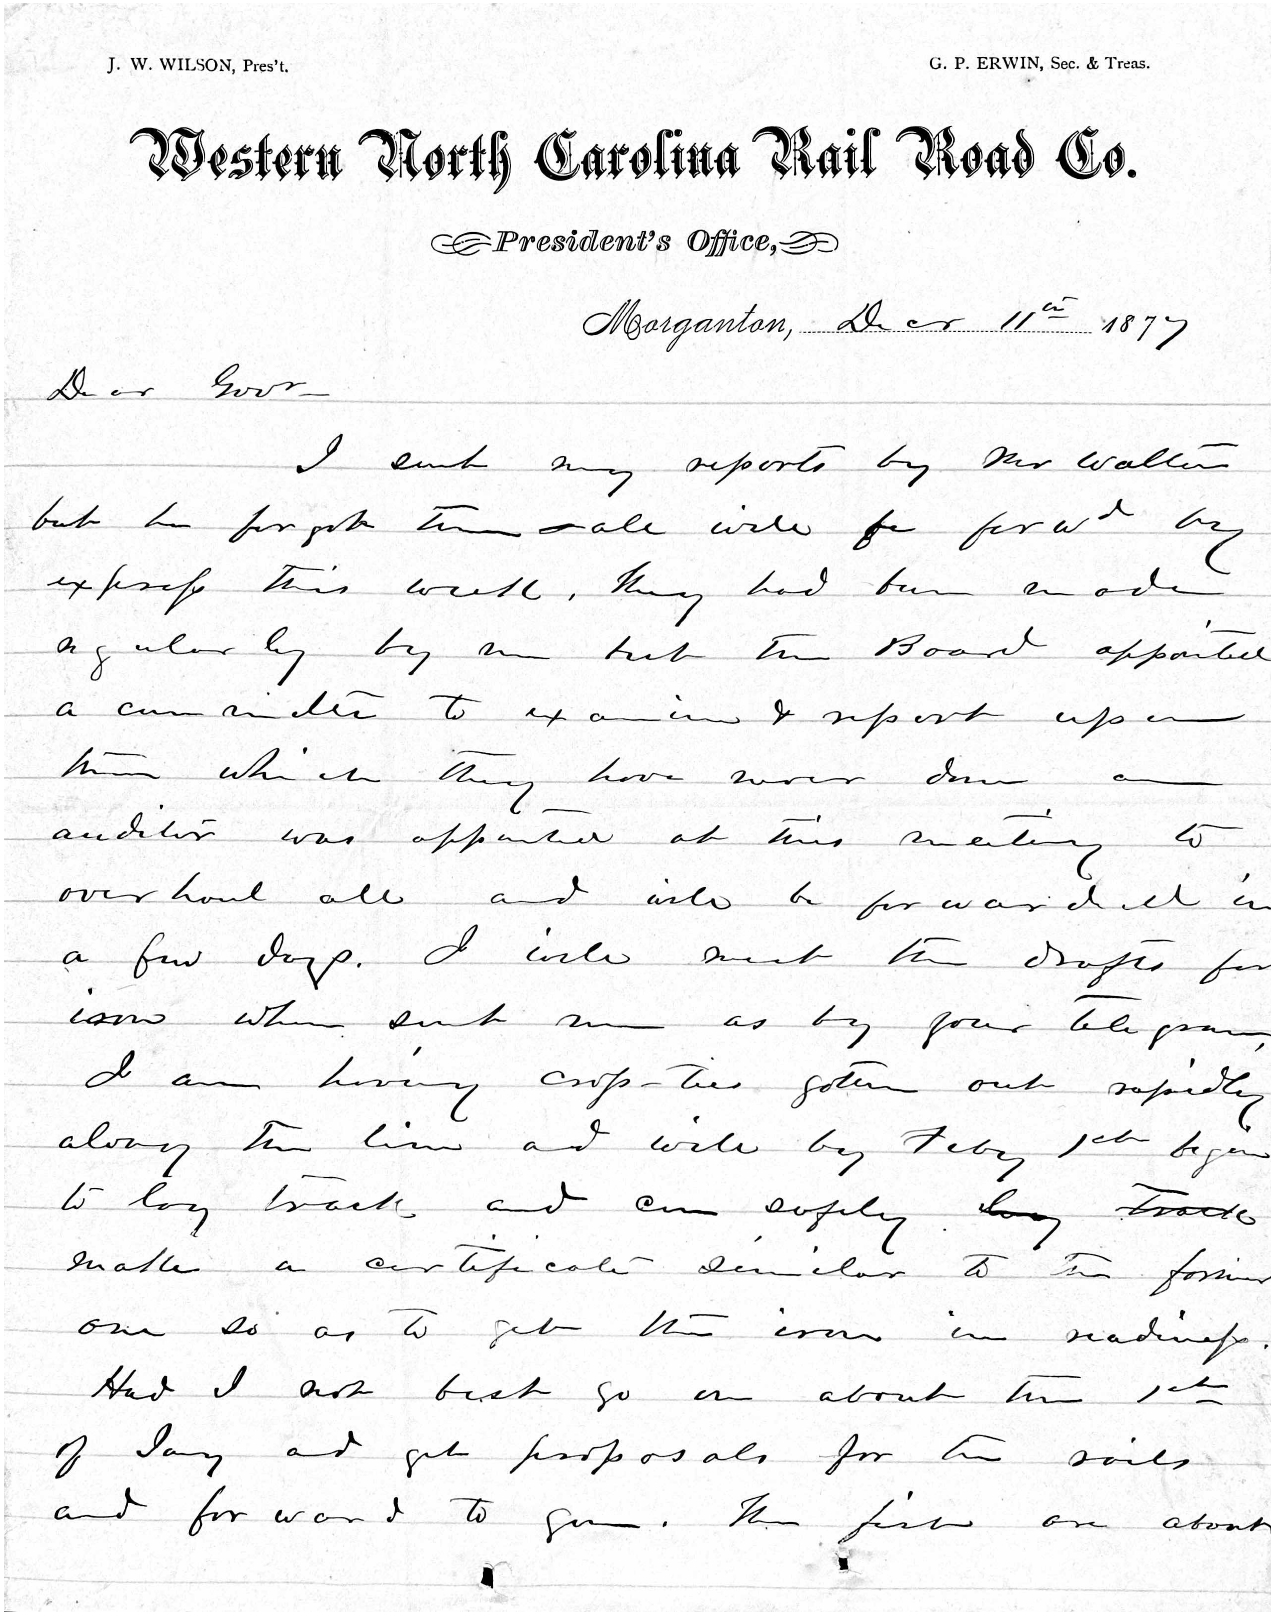 J. W. WILSON, Pres't. G. P. ERWIN, Sec. & Treas.
Western North Carolina Rail Road Co.
President's Office,
Morganton, Decr 11th 1877
Dear Govr
I sent my reports by Mr Walton
but he forgot them all will be forwd by
express this week. They had been made
regularly by me but the Board appointed
a committee to examine & report upon
them which they have never done an
auditor was appointed at this meeting to
overhaul all and will be forwarded in
a few days. I will meet the drafts for
iron when sent me as by your telegram,
I am having cross-ties gotten out rapidly
along the line and will by Feby 1st begin
to lay track and can safely lay track
make a certificate similar to the former
one so as to get the iron in readiness.
Had I not best go on about the 1st
of Jany and get proposals for the rails
and forward to you. The first are about